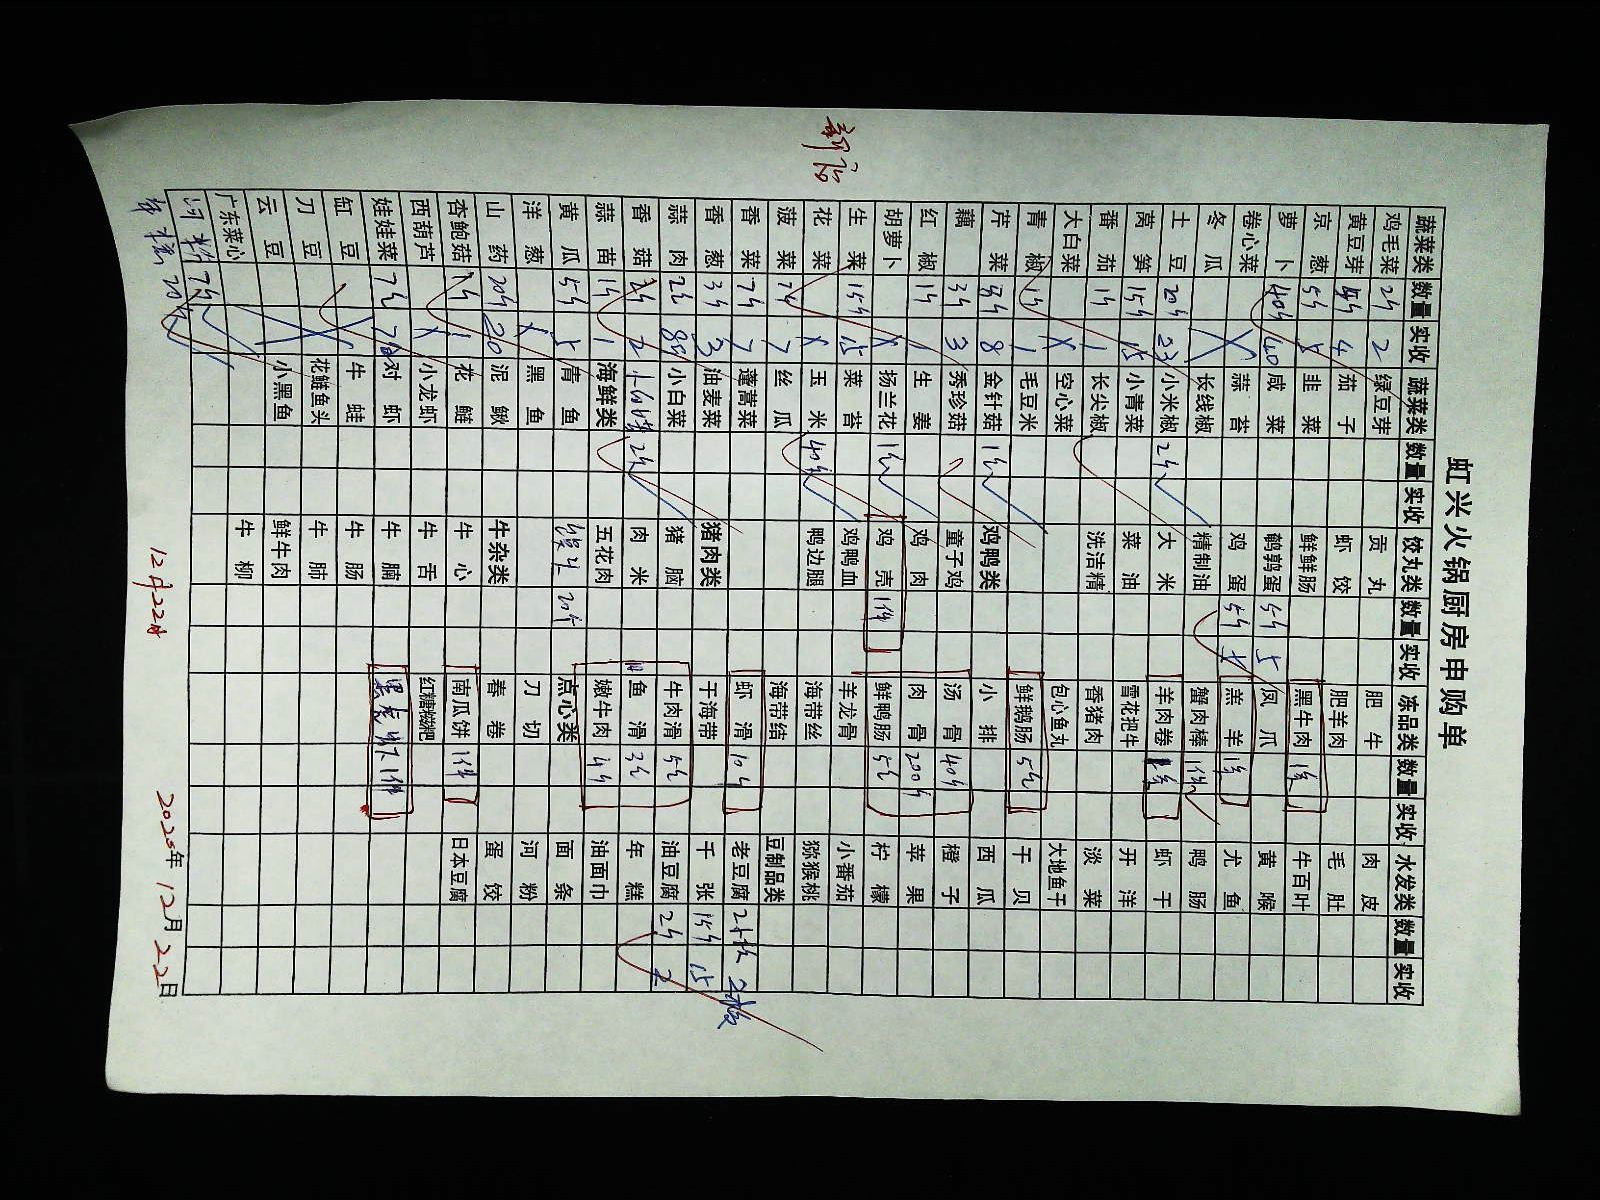 新店
虹兴火锅厨房申购单
蔬菜类 数量 实收 蔬菜类 数量 实收 饺丸类 数量 实收 冻品类 数量 实收 水发类 数量 实收
鸡毛菜 2斤 2 绿豆芽 贡丸 肥牛 肉皮
黄豆芽 4斤 4 茄子 虾饺 肥羊肉 毛肚
京葱 5斤 5 韭菜 鲜鲜肠 黑牛肉 1条 牛百叶
萝卜 40斤 40 咸菜 鹌鹑蛋 5斤 5 凤爪 黄喉
卷心菜 蒜苔 鸡蛋 5斤 羔羊 1条 尤鱼
冬瓜 长线椒 精制油 蟹肉棒 1件 鸭肠
土豆 20斤 23 小米椒 2斤 大米 羊肉卷 1条 虾干
莴笋 15斤 15 小青菜 菜油 雪花把牛 开洋
番茄 1斤 1 长尖椒 洗洁精 香猪肉 淡菜
大白菜 空心菜 包心鱼丸 大地鱼干
青椒 1斤 1 毛豆米 鲜鹅肠 5斤 干贝
芹菜 8斤 8 金针菇 1件 鸡鸭类 小排 西瓜
藕 3斤 3 秀珍菇 童子鸡 汤骨 40斤 橙子
红椒 1斤 生姜 鸡肉 肉骨 200斤 苹果
胡萝卜 扬兰花 1件 鸡壳 1件 鲜鸭肠 5斤 柠檬
生菜 15斤 15 菜苔 鸡鸭血 羊龙骨 小番茄
花菜 玉米 40斤 鸭边腿 海带丝 猕猴桃
菠菜 7斤 7 丝瓜 海带结 豆制品类
香菜 7斤 7 蓬蒿菜 虾滑 10斤 老豆腐 2板 2板
香葱 3斤 3 油麦菜 猪肉类 干海带 千张 15斤 15
蒜肉 2斤 小白菜 猪脑 牛肉滑 5斤 油豆腐 2斤 2
香菇 2斤 2 2斤 肉米 鱼滑 3斤 年糕
蒜苗 1斤 1 海鲜类 五花肉 嫩牛肉 4斤 油面巾
黄瓜 5斤 5 青鱼 点心类 面条
洋葱 黑鱼 刀切 河粉
山药 20斤 20 泥鳅 牛杂类 春卷 蛋饺
杏鲍菇 1斤 1 花鲢 牛心 南瓜饼 1件 日本豆腐
西葫芦 小龙虾 牛舌 红糖糍粑
娃娃菜 7斤 7 对虾 牛腩 黑虎虾 1件
缸豆 牛蛙 牛肠
刀豆 花鲢鱼头 牛肺
云豆 小黑鱼 鲜牛肉
广东菜心 牛柳
7斤
20斤
12月22日
2020年12月22日